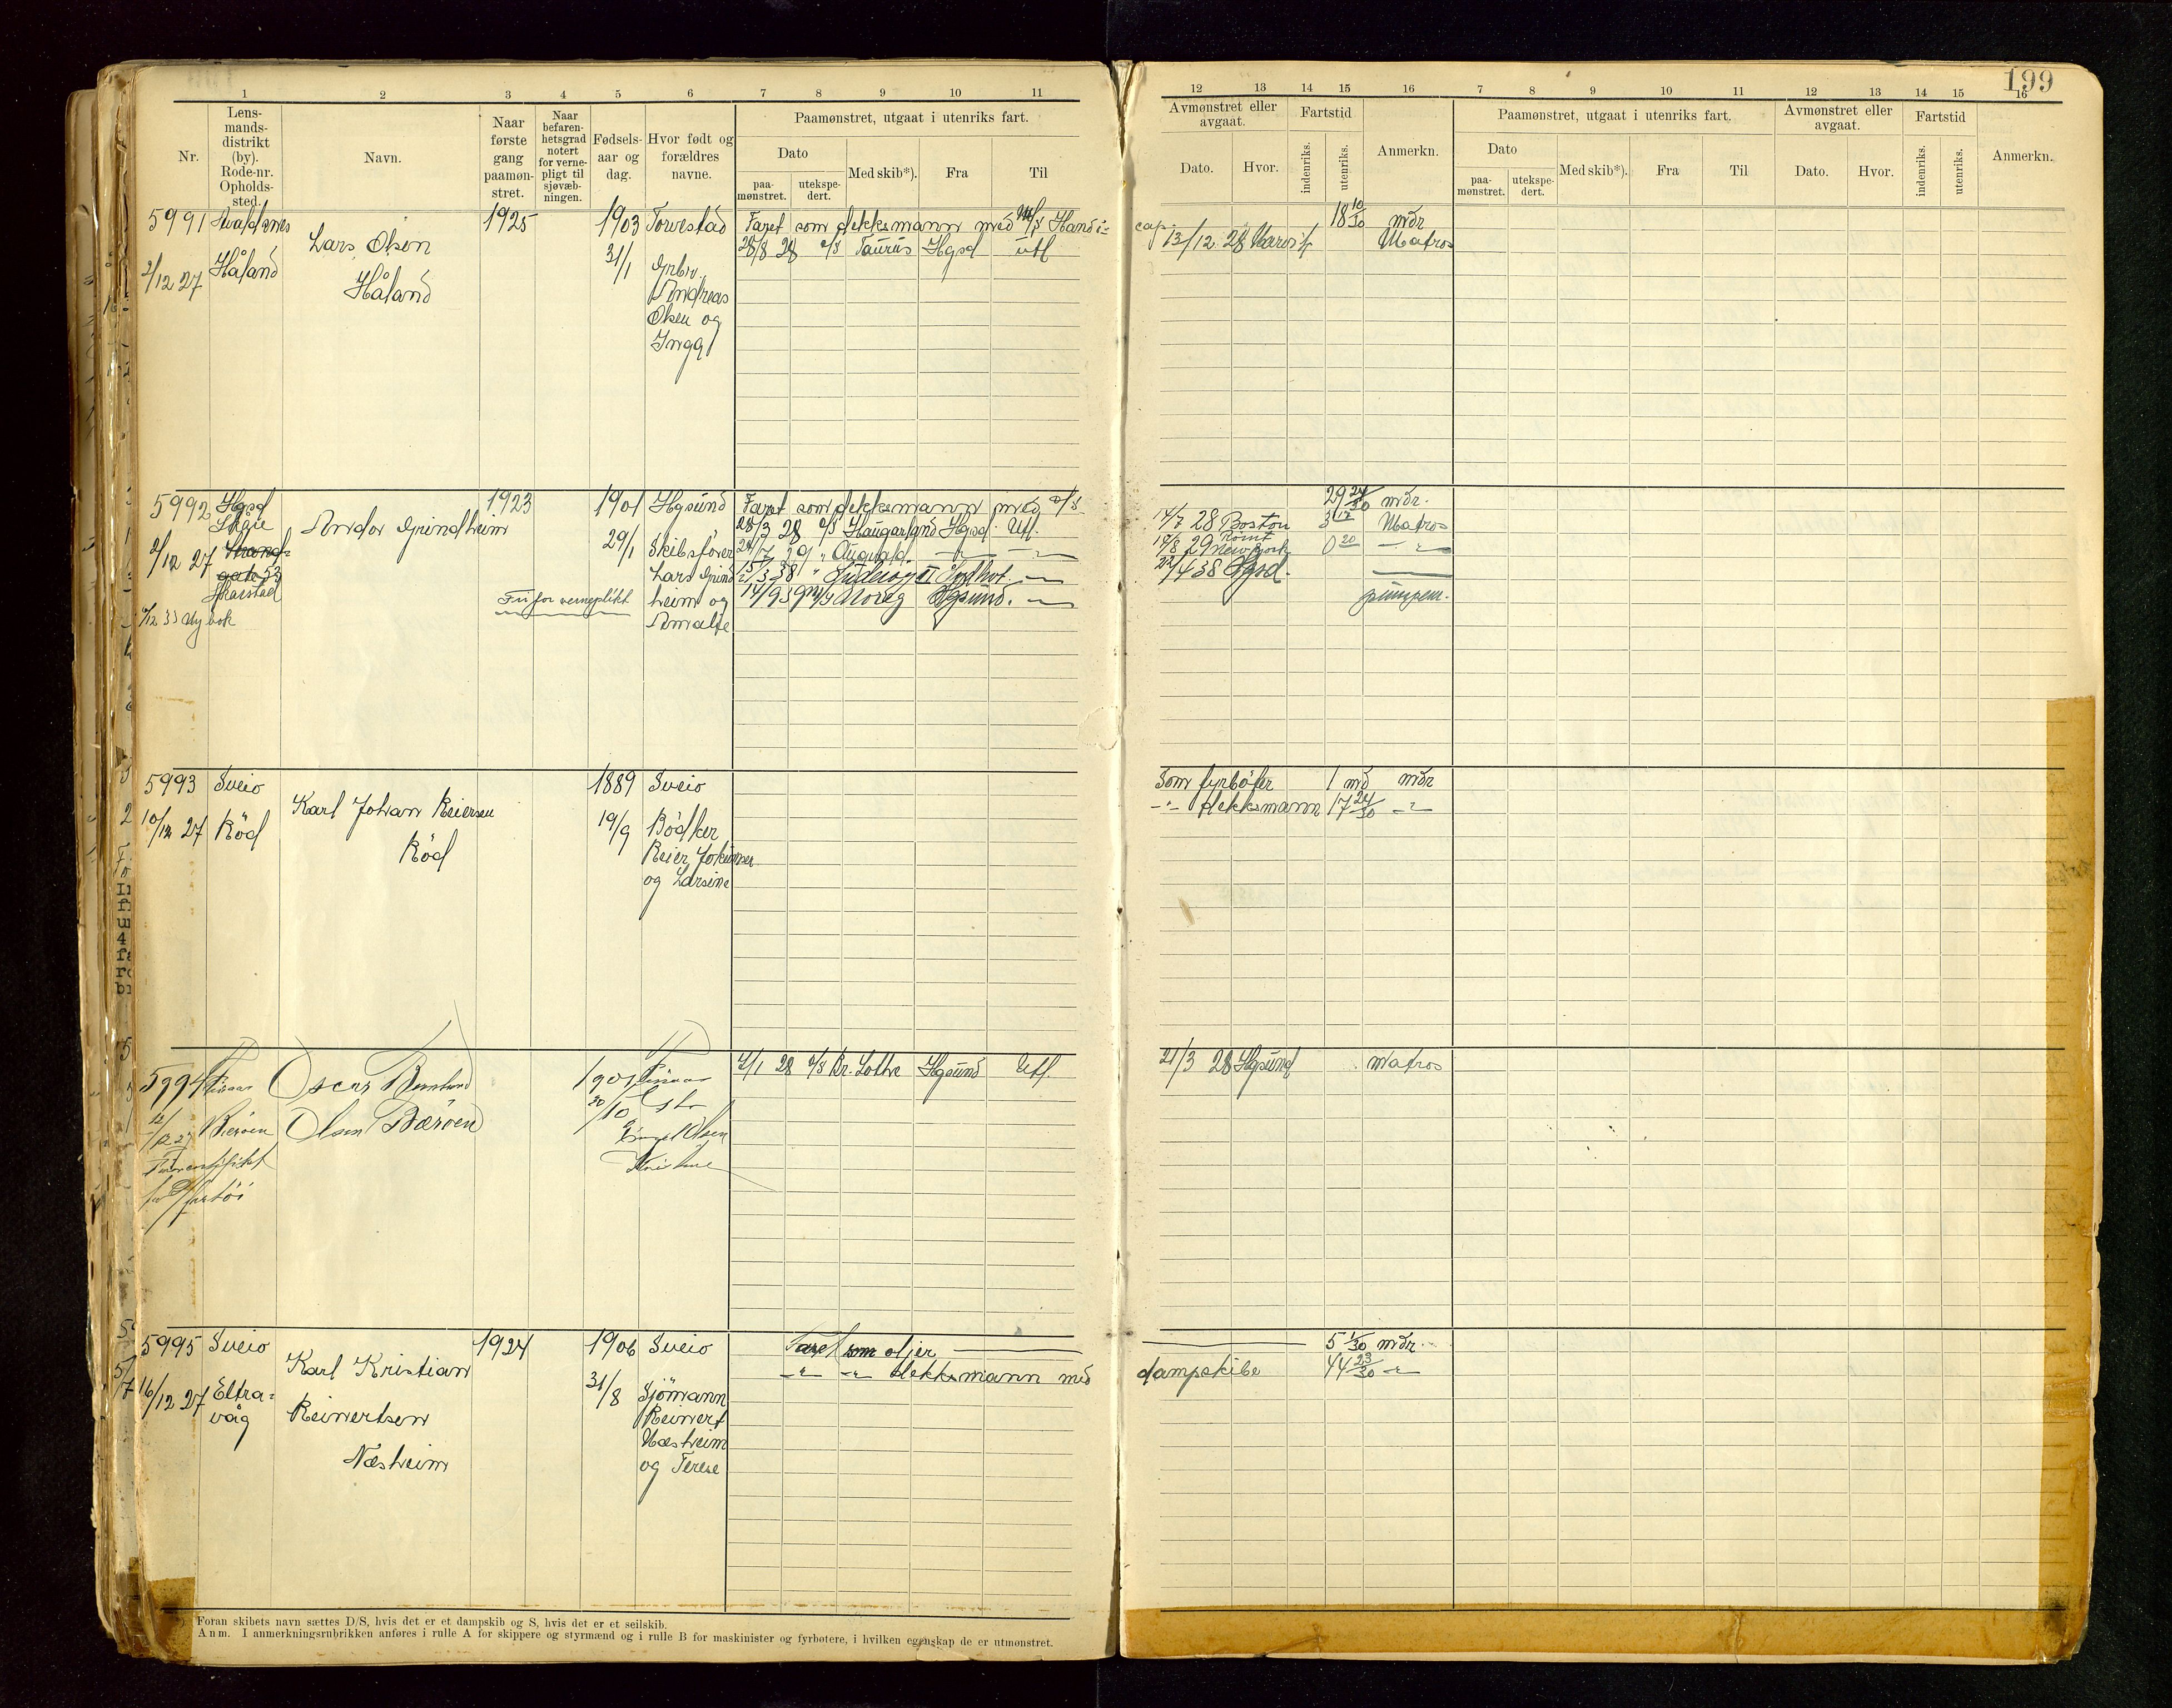 199
1 2 3 4 5 6 7 8 9 10 11
12 13 14 15 16 7 8 9 10 11 12 13 14 15 16
Nr.
Lens-
mands-
distrikt
(by).
Rode-nr.
Opholds-
sted.
Navn.
Naar
første
gang
paamøn-
stret.
Naar
befaren-
hetsgrad
notert
for verne-
pligt til
sjøvæb-
ningen.
Fødsels-
aar og
dag.
Hvor født og
forældres
navne.
Paamønstret, utgaat i utenriks fart.
Dato
paa-
mønstret.
utekspe-
dert.
Med skib*).
Fra
Til
Avmønstret eller
avgaat.
Dato.
Hvor.
Fartstid
indenriks.
utenriks.
Anmerkn.
Paamønstret, utgaat i utenriks fart.
Dato
paa-
mønstret.
utekspe-
dert.
Med skib*).
Fra
Til
Avmønstret eller
avgaat.
Dato.
Hvor.
Fartstid
indenriks.
utenriks.
Anmerkn.
5991
2/12 27
Avaldsnes
Håland
Lars Olsen
Håland
1925
1903
31/1
Torvestad
Grbr.
Andreas
Olsen og
Inga
Faret som dekksmann med M/S Handi=
cap. 18 10/30 mdr
28/8 28 d/s Taurus Hgsd utl
13/12 28 Matros
5992
2/12 27
Hgsd
Skåre
Strand-
gate 53
7/12 33 Ny bok
Andor Grindheim
1923
Fri for verneplikt
1901
29/1
Hgsund
Skibsfører
Lars Grind
heim og
Amalie
Faret som dekksmann med d/s
29 24/30 mdr.
28/3 28 d/s Haugarland Hgsd. Utl.
14/7 28 Boston 3 17 Matros
24/7 29 " Augvald
18/8 29 New York 0 20
22/4 38 Hgsd.
14/9 39 M/S Noreg Hgsund.
pumpem.
5993
10/12 27
Sveio
Röd
Karl Johan Reiersen
Röd
1889
19/9
Sveio
Bödker
Reier Jokumsen
og Larsine
Som fyrböter 1 md mdr
dekksmann 17 24/30
5994
12/12 27
Oscar Bernhard
Olsen Bærøen
1901
30/10
Olsen
Kristine
4/1 28 d/s Kr. Lothe Hgsund Utl.
21/3 28 Hgsund Matros
5995
16/12 27
Sveio
Eltra=
våg
Karl Kristian
Reinertsen
Næsheim
1924
1906
31/8
Sveio
Sjömann
Reinert
Næsheim
og Terese
Faret som oljer 5 1/30 mdr.
dekksmann med
dampskibe 44 23/30
Foran skibets navn sættes D/S, hvis det er et dampskib og S, hvis det er et seilskib.
Anm. I anmerkningsrubrikken anføres i rulle A for skippere og styrmænd og i rulle B for maskinister og fyrbøtere, i hvilken egenskap de er utmønstret.